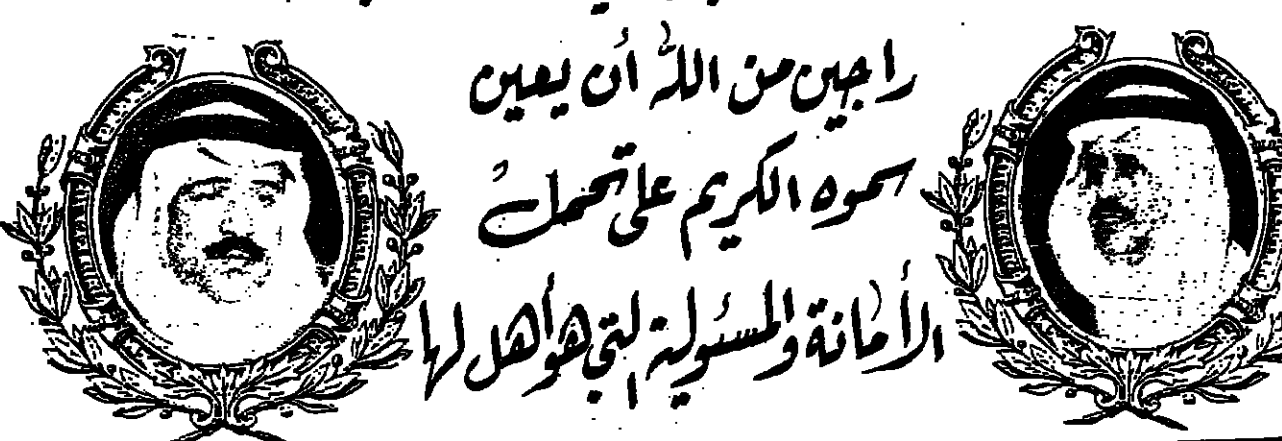 راجين من الله أن يعين
سموه الكريم على تحمل
الأمانة والمسئولية التي هو أهل لها